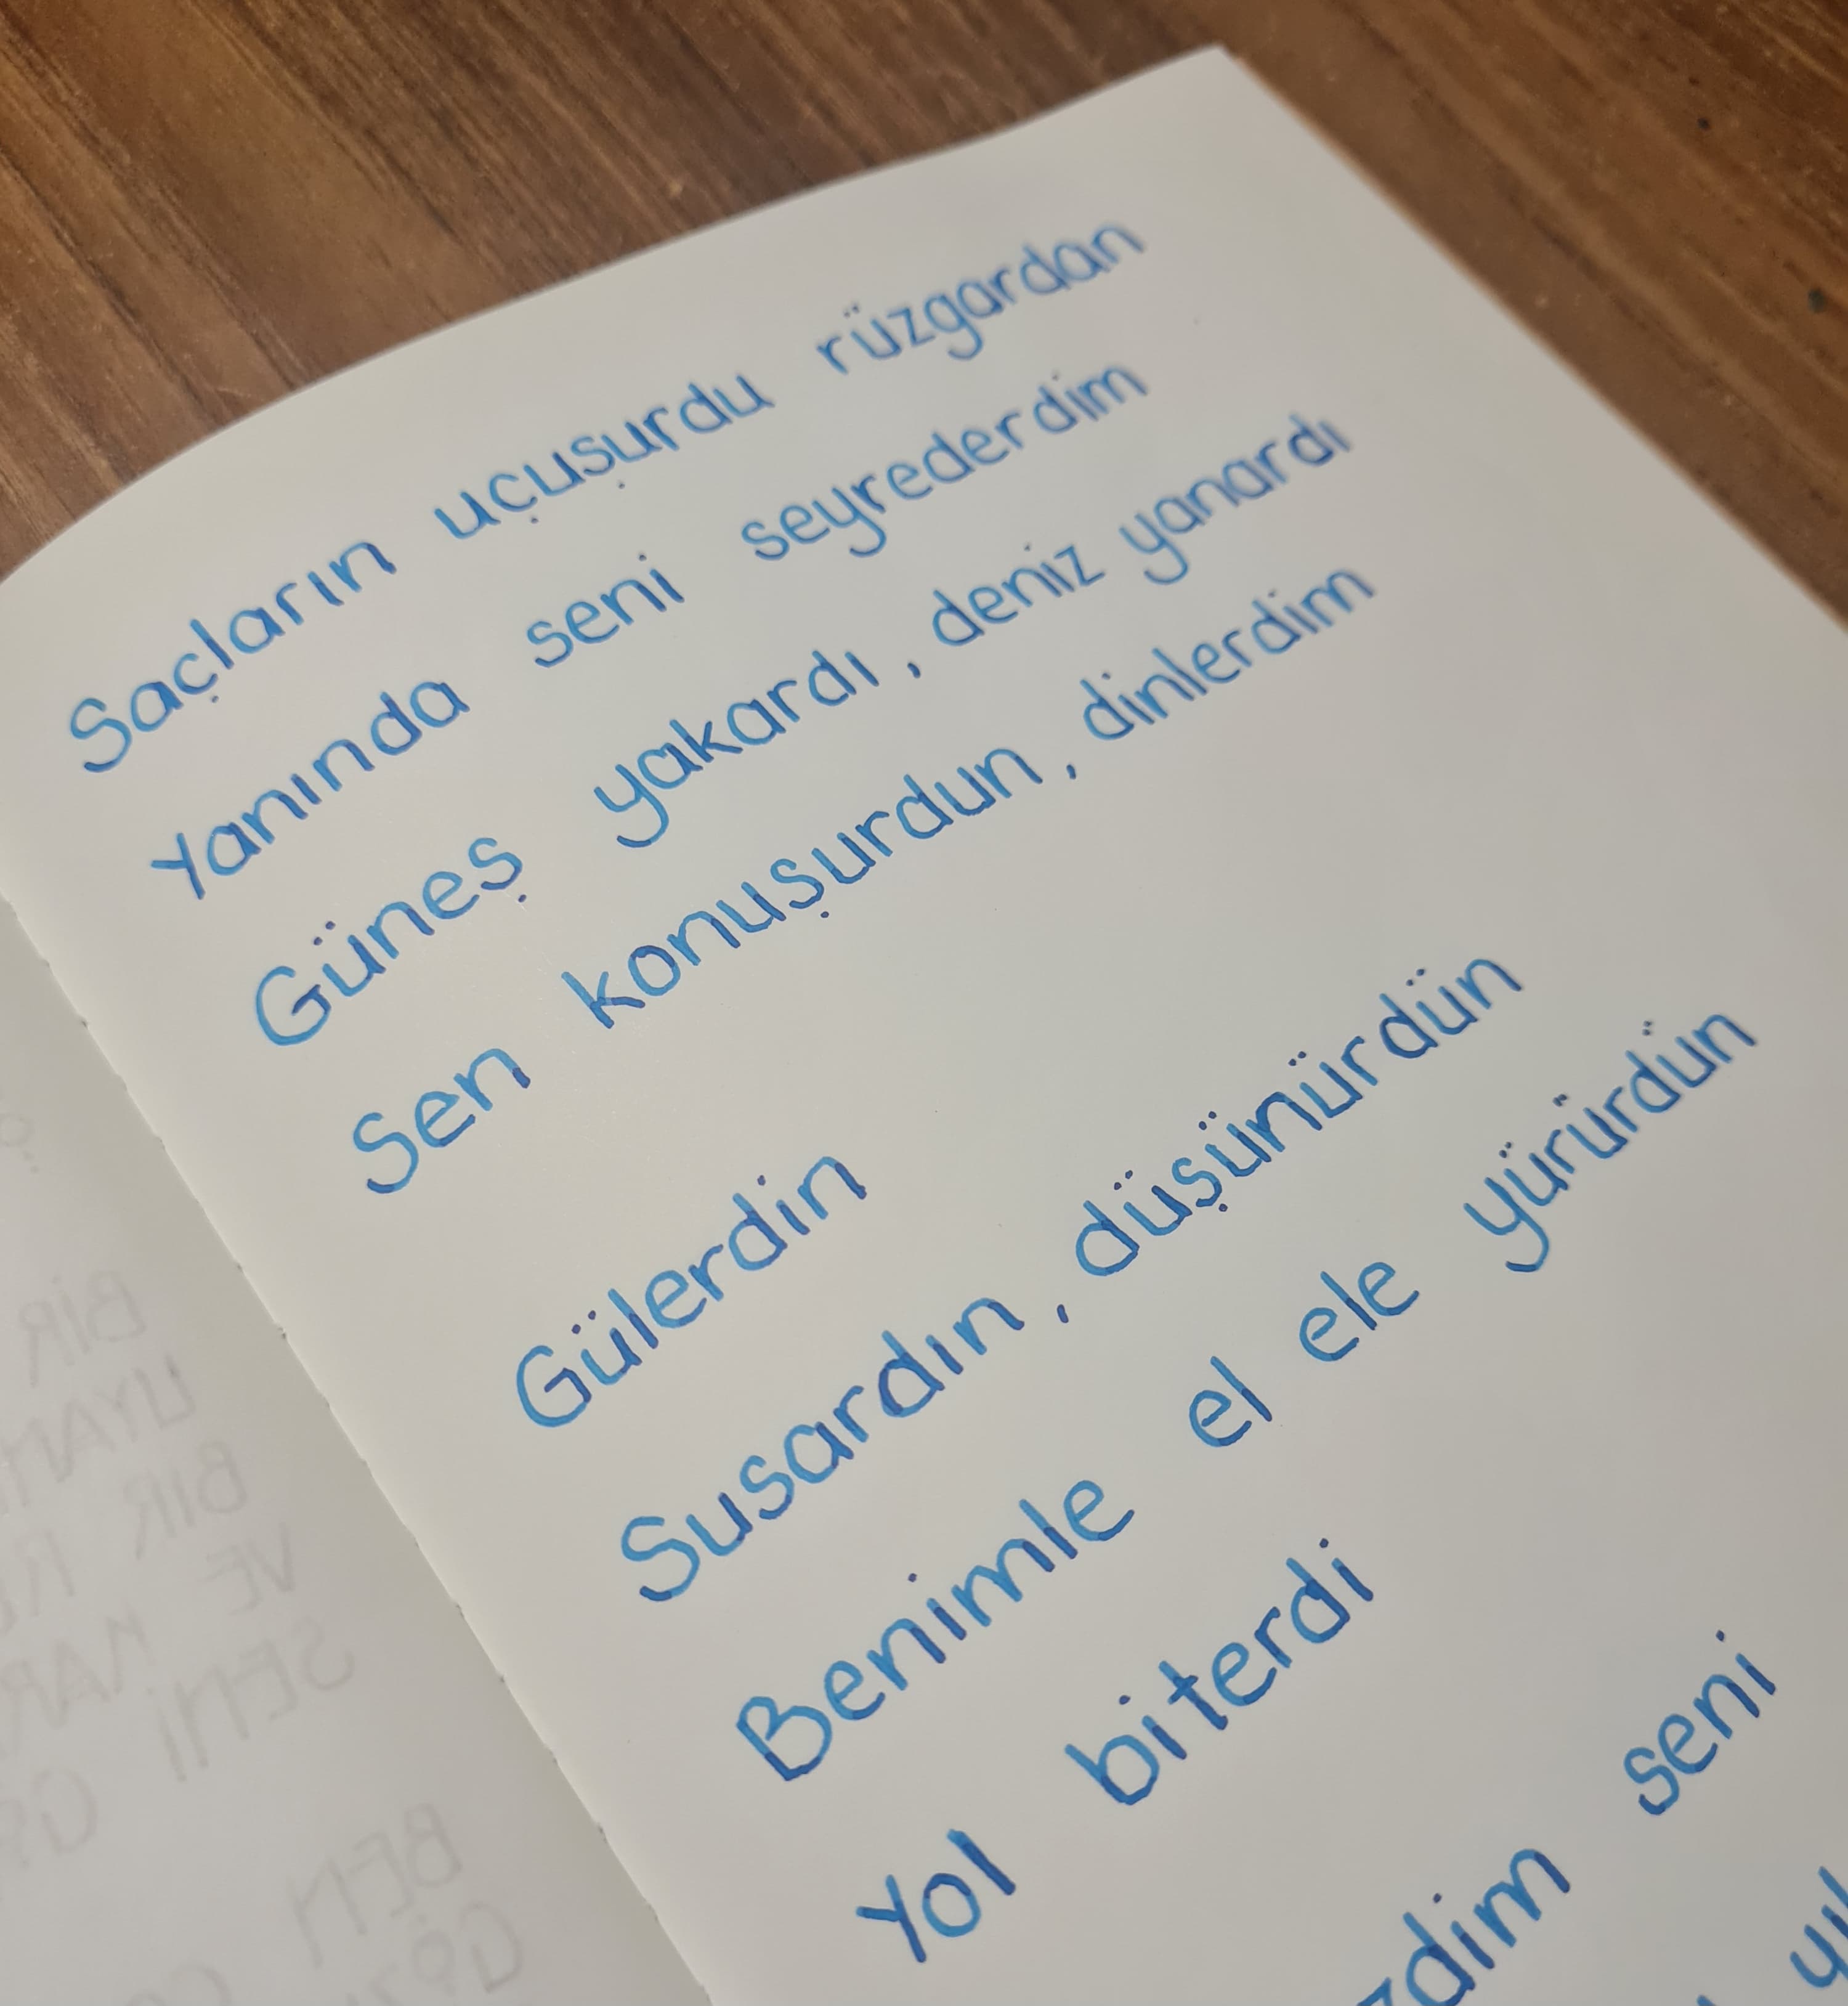 Saçların uçuşurdu rüzgardan
Yanında seni seyrederdim
Güneş yakardı, deniz yanardı
Sen konuşurdun, dinlerdim
Gülerdin
Susardın, düşünürdün
Benimle el ele yürürdün
Yol biterdi
seni
BİR
BIR
VE
SENİ
BEN